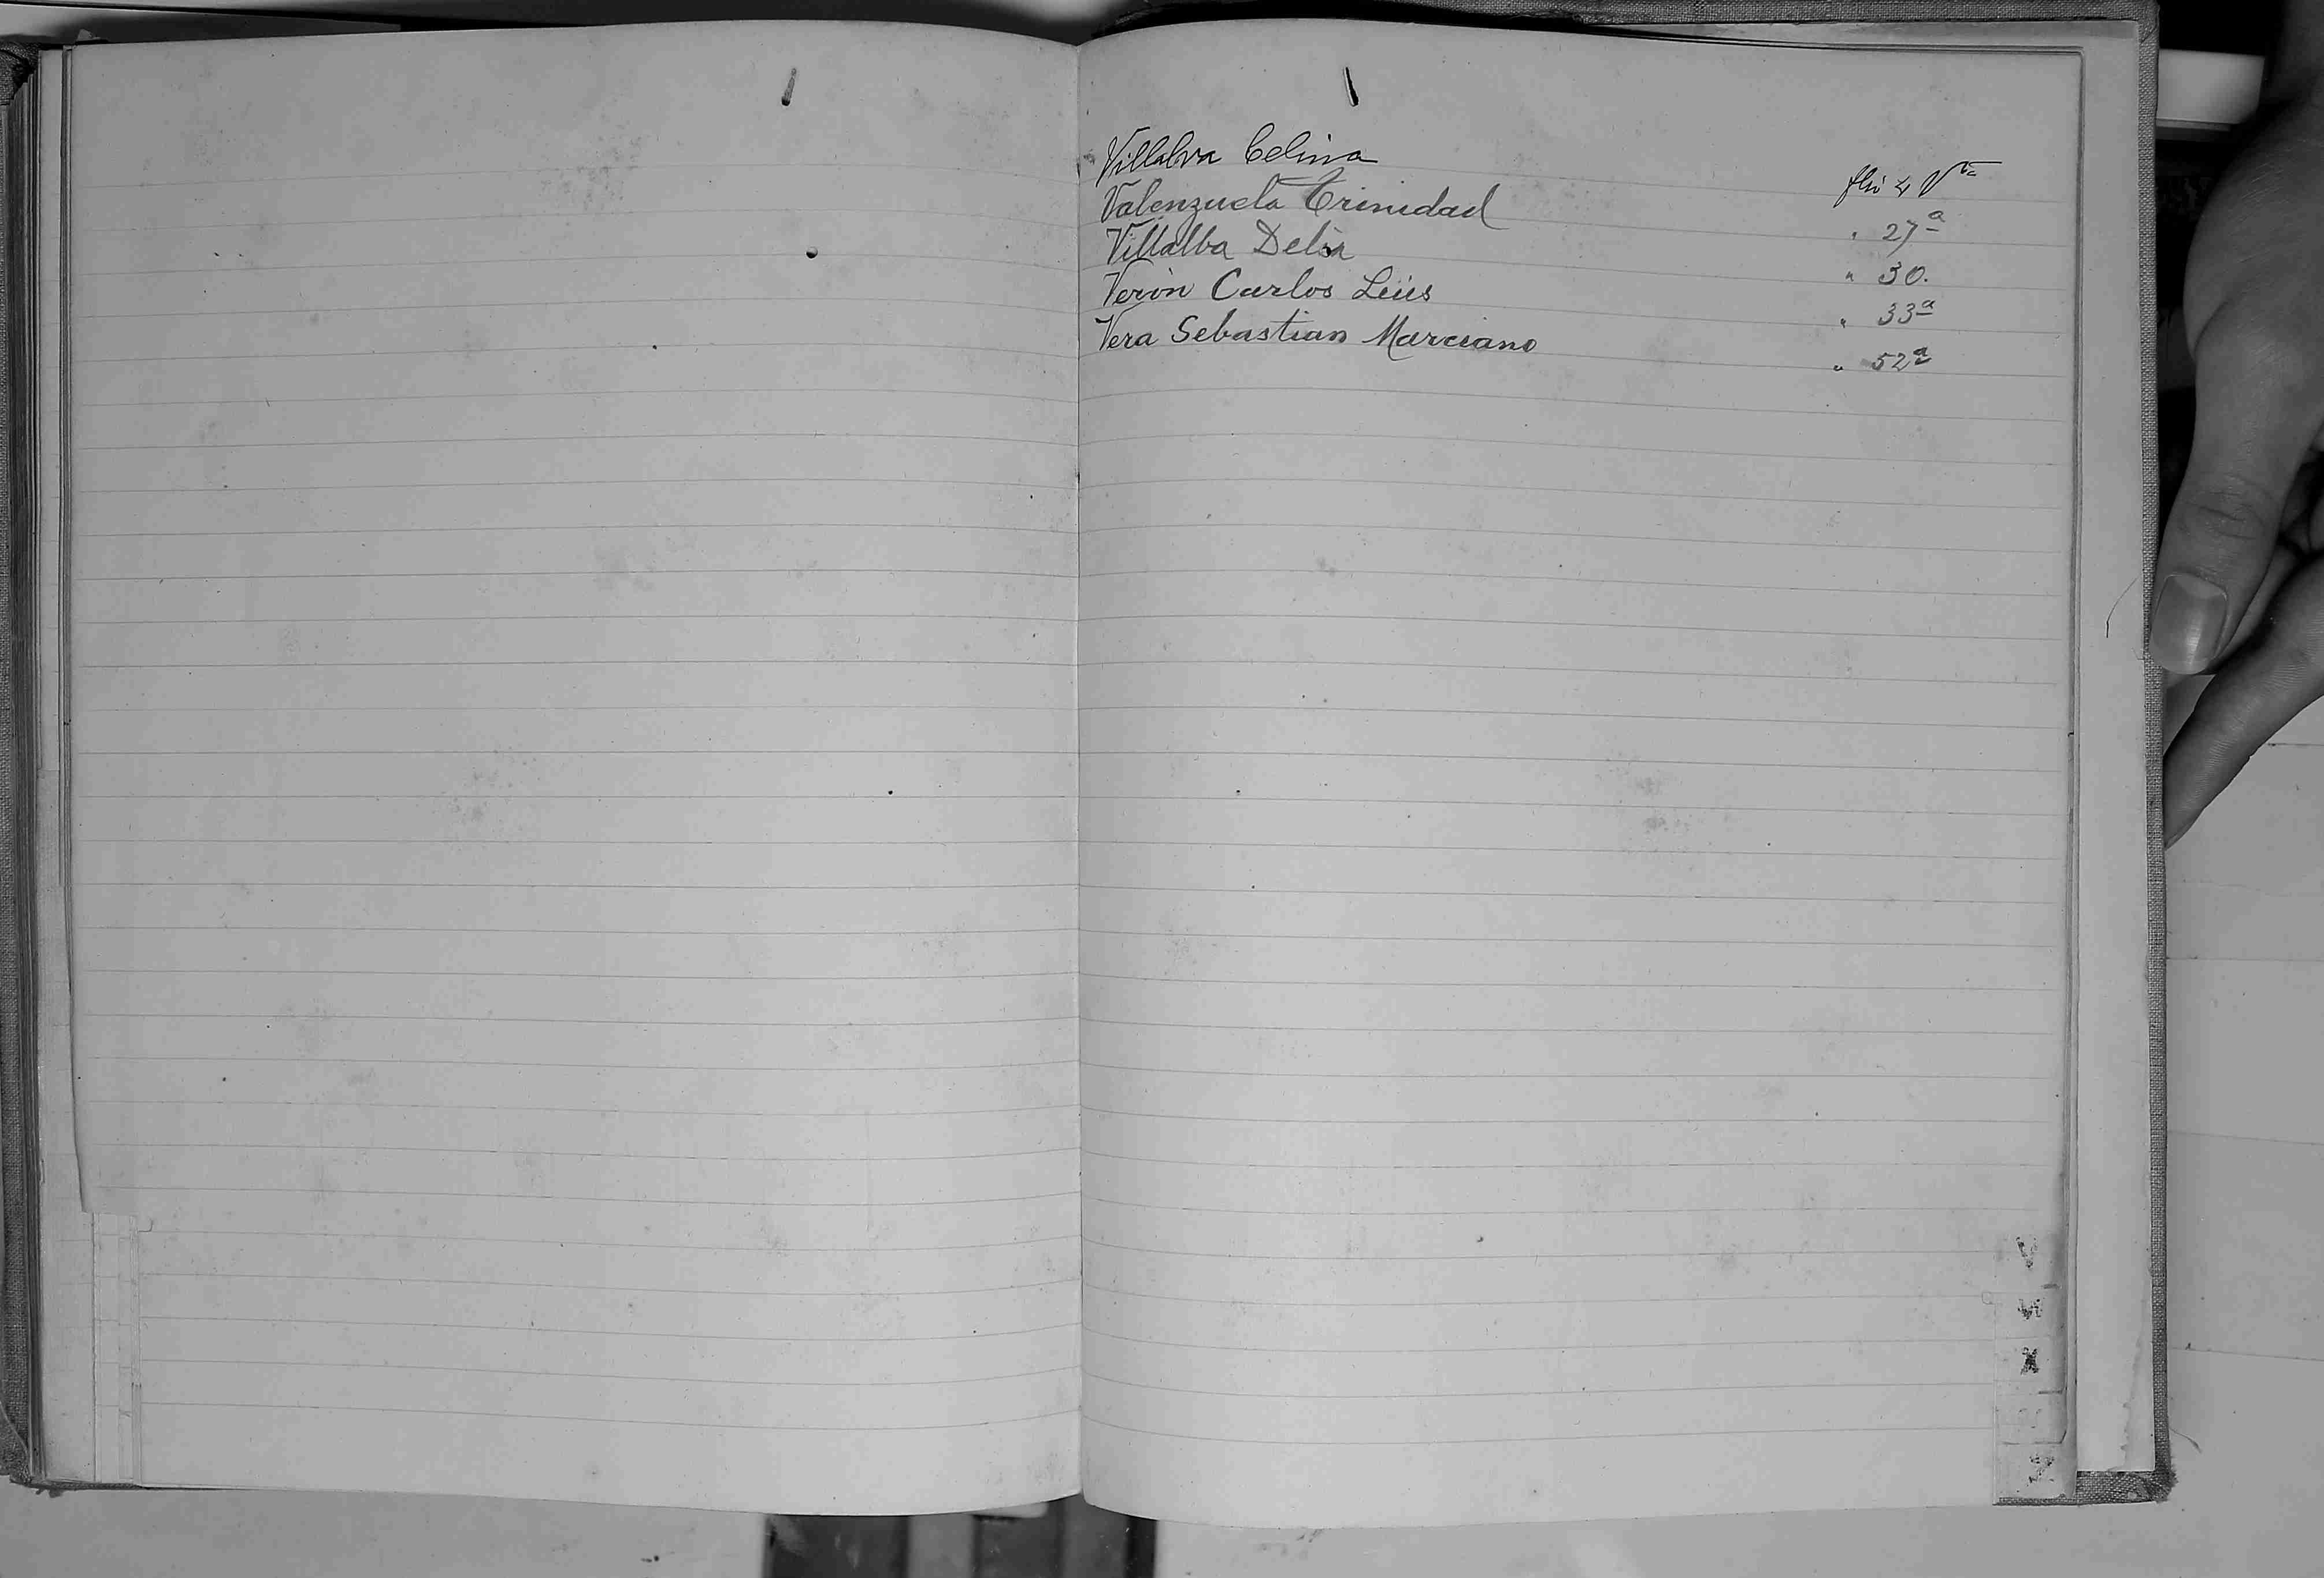 Villalva Celina flio 4 Vta
Valenzuela Trinidad " 27a
Villalba Delia " 30.
Verón Carlos Luis " 33a
Vera Sebastian Marciano " 52a
V
W
X
Z